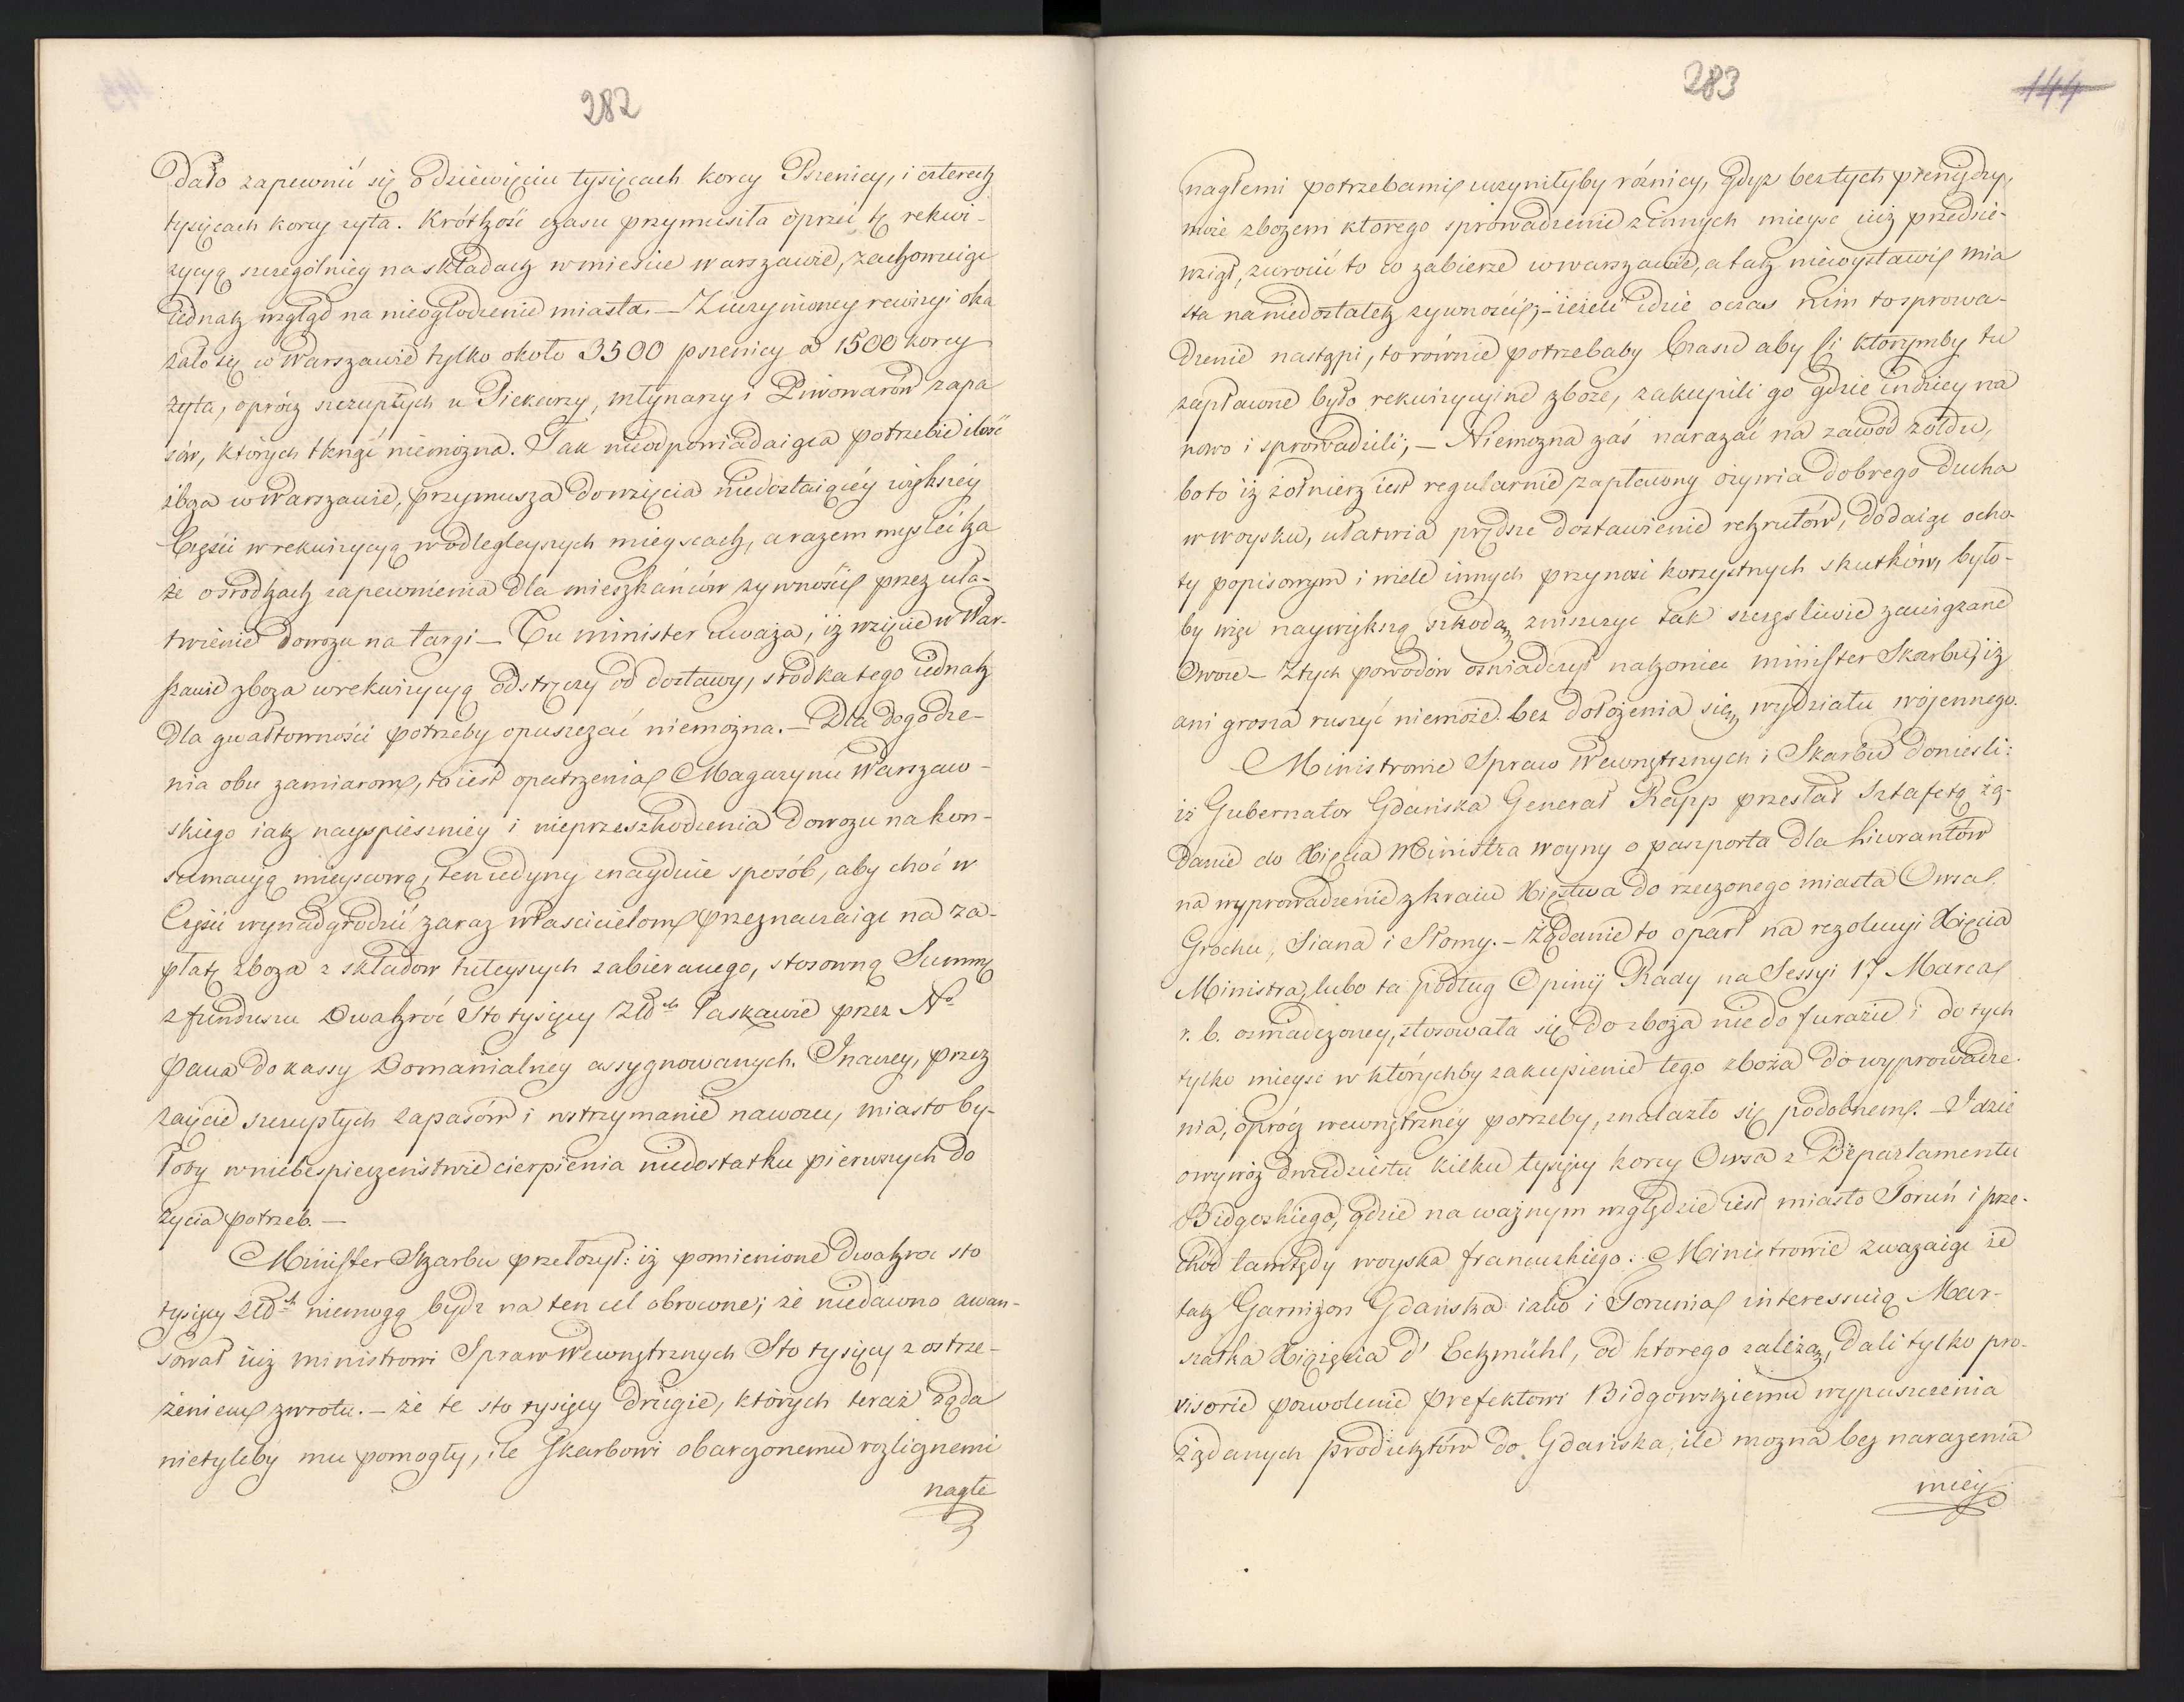 282
Dało zapewnić się o dziewięciu tysięcach korcy Pszenicy, i czterech
tysięcach korcy żyta. Krótkość czasu przymusiła oprzeć tę rekwi-
zycyą szczególniey na składach w mieście Warszawie, zachowuiąc
iednak wzgląd na nieogłodzenie miasta. — Z uczynioney rewizyi oka
zało się w Warszawie tylko około 3500 pszenicy a 1500 korcy
żyta, oprócz szczupłych u Piekarzy, młynarzy i Piwowarów zapa
sów, których tknąć niemożna. Tak nieodpowiadaiąca potrzebie ilość
zboża w Warszawie, przymusza do wzięcia niedostaiącéy większéy
Części w rekwizycyą w odległeyszych mieyscach, a razem myśleć ka
że o srodkach zapewnienia dla mieszkańców żywności przez uła-
twienie dowozu na targi — Tu minister uważa, iż wzięcie w War-
szawie zboża w rekwizycyą odstręczy od dostawy, srodka tego iednak
dla gwałtowności potrzeby opuszczać niemożna. — Dla dogodze-
nia obu zamiarom, to iest opatrzenia Magazynu Warszaw-
skiego iak nayspieszniey i nieprzeszkodzenia dowozu na kon-
sumacyą mieyscową, ten iedyny znayduie sposób, aby choć w
Części wynadgrodzić zaraz właścicielom przeznaczaiąc na za-
płatę zboża z składow tuteyszych zabieranego, stosowną Summę
z funduszu Dwakroć Sto tysięcy Złd.ch łaskawie przez N.o
Pana do kassy Domanialney assygnowanych. Inaczey, przez
zaięcie szczupłych zapasów i wstrzymanie nawozu, miasto by-
łoby w niebespieczeństwie cierpienia niedostatku pierwszych do
życia potrzeb. —
Minister Skarbu przełożył: iż pomienione dwakroc sto
tysięcy złd.ch niemogą bydz na ten cel obrócone; że niedawno awan-
sował iuż ministrowi Spraw Wewnętrznych Sto tysięcy z ostrze-
żeniem zwrotu. — że te sto tysięcy drugie, których teraz żąda
nietyleby mu pomogły, ile Skarbowi obarczonemu rozlicznemi
nagłe
283
144
nagłemi potrzebami uczyniłyby róznicy, gdyż bez tych pieniędzy,
może zbożem ktorego sprowadzenie z innych mieysc iuż przedsie-
wziął, zwrócić to co zabierze w Warszawie, a tak niewystawi mia
sta na niedostatek żywności; — ieżeli idzie o czas nim to sprowa-
dzenie nastąpi, to równie potrzebaby Czasu aby Ci którymby tu
zapłacone było rekwizycyine zboże, zakupili go gdzie indziey na
nowo i sprowadzili; — Niemożna zaś narażać na zawod żołdu,
bo to iż żołnierz iest regularnie zapłacony ożywia dobrego ducha
w woysku, ułatwia prędsze dostawienie rekrutów, dodaiąc ocho-
ty popisowym i wiele innych przynosi korzystnych skutków, było-
by więc naywiększą szkodą zniszczyć tak szczęsliwie zawiązane
Owoce — Z tych powodów oświadczył nakoniec minister Skarbu, iż
ani grosza ruszyć niemoże bez dołożenia się wydziału wojennego.
Ministrowie Spraw Wewnętrznych i Skarbu donieśli:
iż Gubernator Gdańska Generał Rapp przesłał Sztafetą żą-
danie do Xięcia Ministra Woyny o paszporta dla Liwrantów
na wyprowadzenie z kraiu Xięstwa do rzeczonego miasta Owsa,
Grochu, Siana i Słomy. — Żądanie to oparł na rezolucyi Xięcia
Ministra, lubo ta podług Opinij Rady na Sessyi 17 Marca
r. b. oswiadczoney, stosowała się do zboża nie do furażu i do tych
tylko mieysc w którychby zakupienie tego zboża do wyprowadze-
nia, oprócz wewnętrznéy potrzeby, znalazło się podobnem. — Idzie
o wywóz dwudziestu kilku tysięcy korcy Owsa z Departamentu
Bidgoskiego, gdzie na ważnym względzie iest miasto Toruń i prze-
chód tamtędy woyska francuskiego: Ministrowie zważaiąc że
tak Garnizon Gdańska iako i Torunia interessuią Mar-
szałka Xiążęcia d' Eckmühl, od ktorego zależą, dali tylko pro-
visorie pozwolenie Prefektowi Bidgowskiemu wypuszczenia
żądanych produktów do Gdańska, ile można bez narażenia
mieÿ